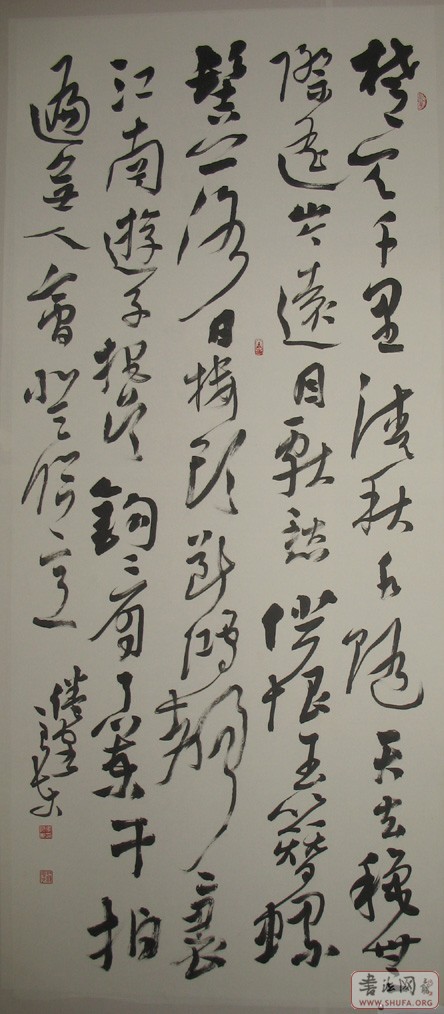 楚天千里清秋水随天去秋无
际遥岑远目献愁供恨玉簪螺
髻落日楼头断鸿声里
江南游子把吴钩看了栏干拍
遍无人会登临意
书法网
WWW.SHUFA.ORG